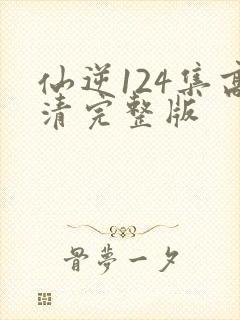 仙逆124集高
清完整版
骨夢一夕